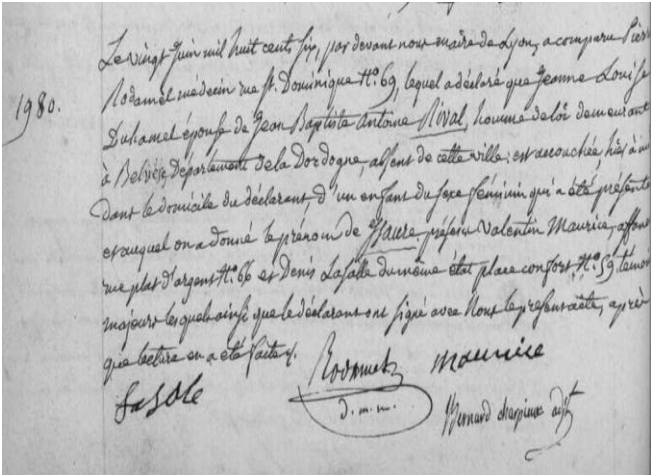 1980.
Le vingt Juin mil huit cents six, par devant nous maire de Lyon, a comparu Pierre
Rodamel médecin rue St. Dominique No. 69, lequel a déclaré que Jeanne Louise
Duhamel épouse de Jean Baptiste Antoine Rival, homme de loi demeurant
à Belvès, Département de la Dordogne, absent de cette ville; est accouchée, hier à
Dans le domicile du déclarant d'un enfant du sexe féminin qui a été présenté
et auquel on a donné le prénom de présens Valentin Maurice,
rue plat d'argent No. 66 et Denis Lasalle du même état place confort No. 59 témoins
majeurs lesquels ainsi que le déclarant ont signé avec Nous le présent acte, après
que lecture en a été faite.
Rodamel Maurice
LaSale
d. m. m.
Bernard charpieux adjt